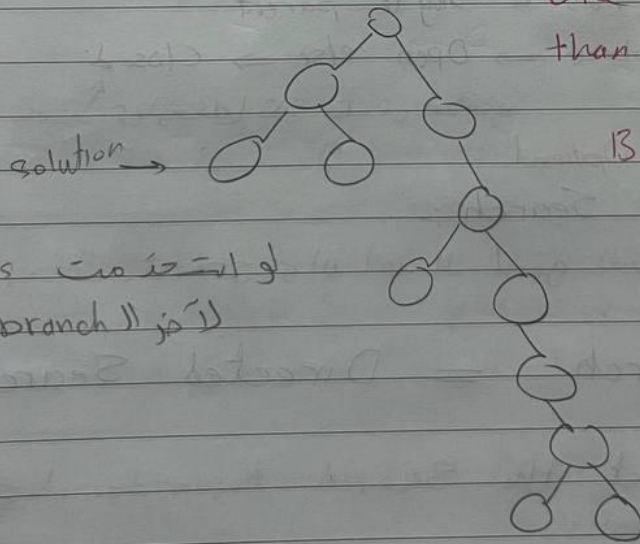 than
solution →
B
لو استخدمت s
لآخر الـ branch